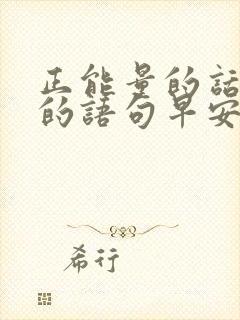 正能量的話
的語句早安
希行